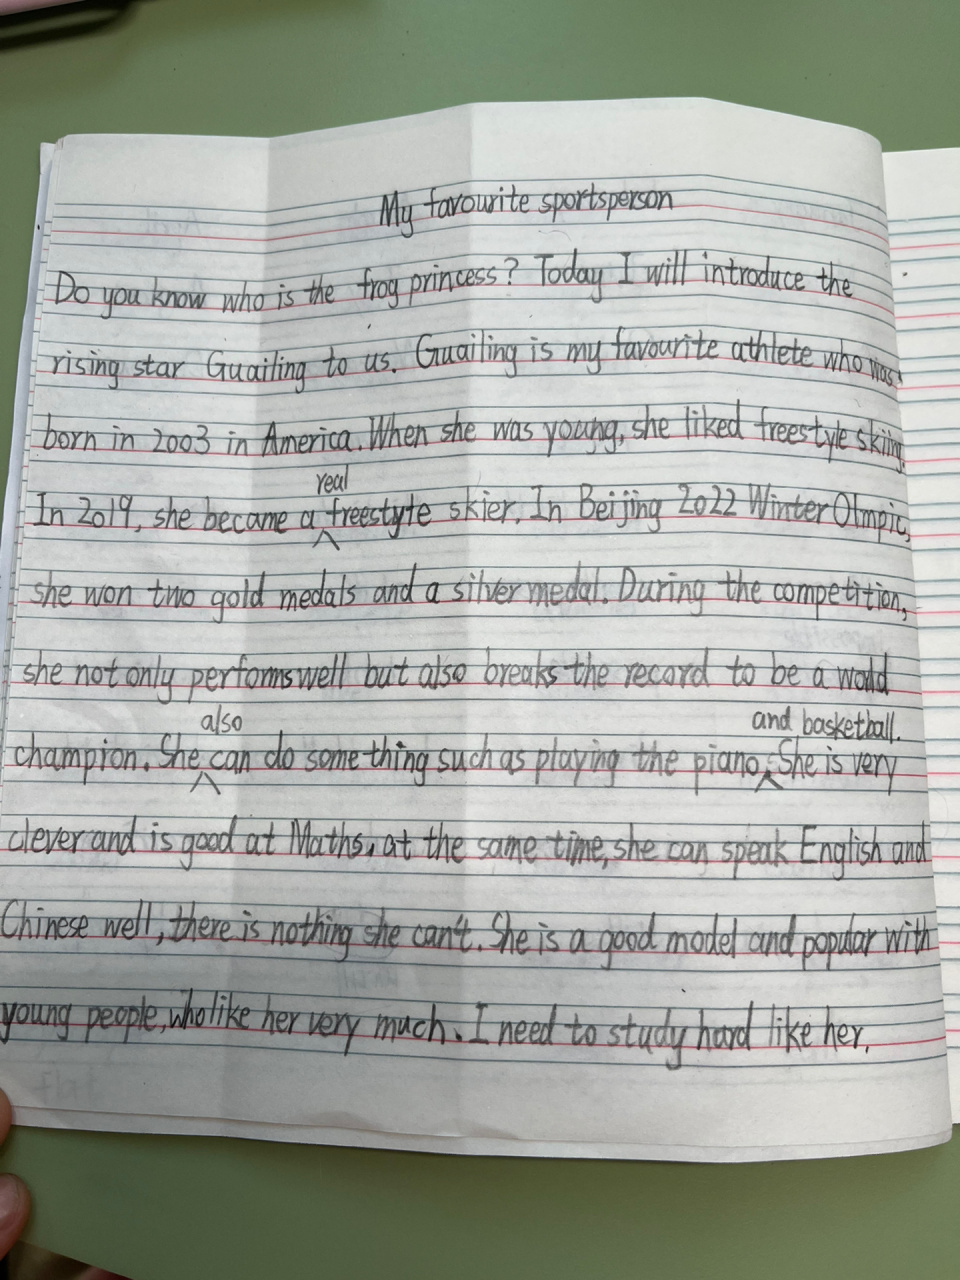 My favourite sportsperson
Do you know who is the frog princess? Today I will introduce the
rising star Guailing to us. Guailing is my favourite athlete who was
born in 2003 in America. When she was young, she liked freestyle skiing.
real
In 2019, she became a freestyte skier. In Beijing 2022 Winter Olmpic,
she won two gold medals and a silver medal. During the competition,
she not only performs well but also breaks the record to be a world
also and basketball.
champion. She can do something such as playing the piano. She is very
clever and is good at Maths, at the same time, she can speak English and
Chinese well, there is nothing she can't. She is a good model and popular with
young people, who like her very much. I need to study hard like her.